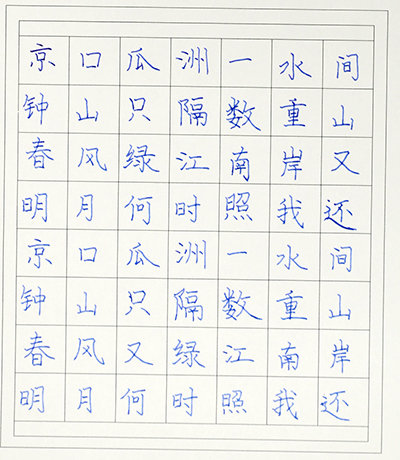 京口瓜洲一水间
钟山只隔数重山
春风绿江南岸又
明月何时照我还
京口瓜洲一水间
钟山只隔数重山
春风又绿江南岸
明月何时照我还